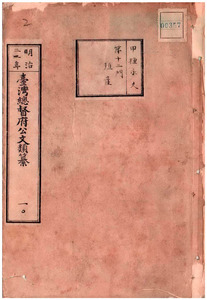 2
明治
三一年
臺灣總督府公文類纂
一〇
甲種永久
第十二門
殖產